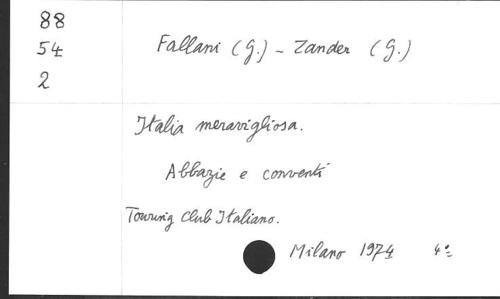 88
54
2
Fallani (G.) - Zander (G.)
Italia meravigliosa.
Abbazie e conventi
Touring Club Italiano.
Milano 1974 4º